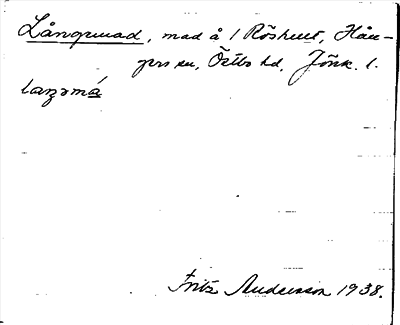 Långmad, mad å 1 Röshult, Hån-
gers sn, Östbo hd. Jönk. l.
laŋəmá
Fritz Anderson 1938.